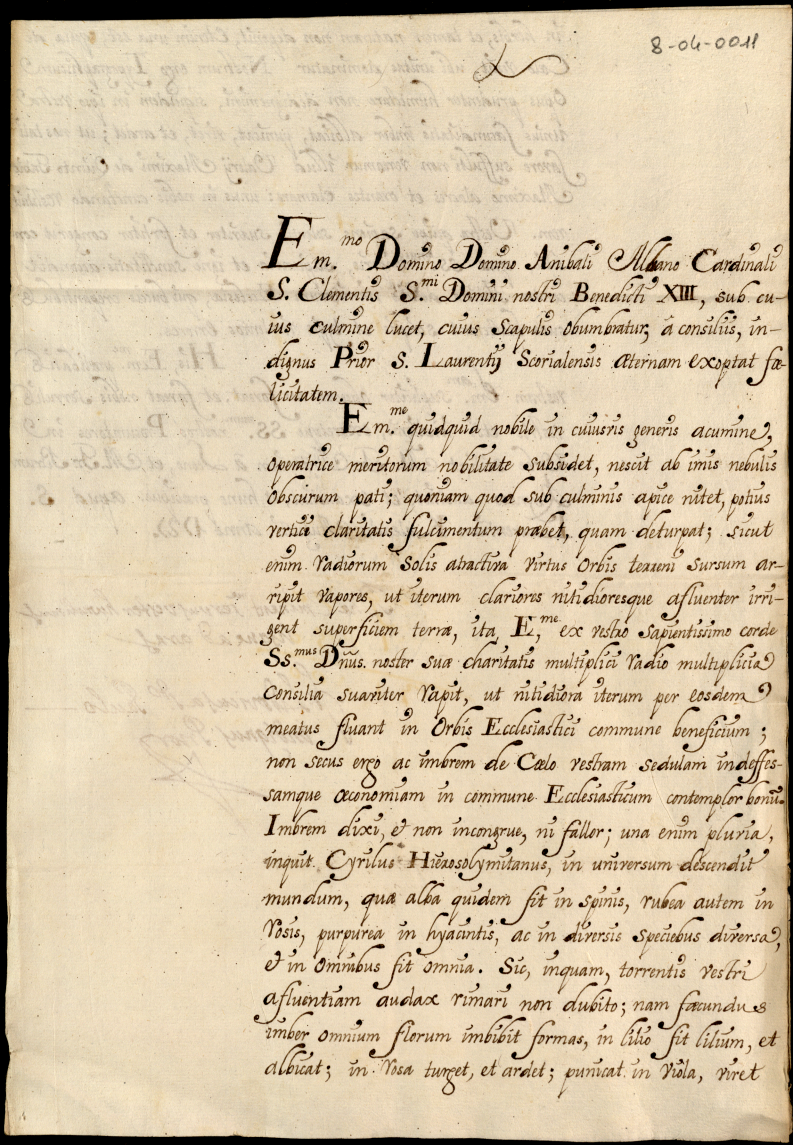 8-04-0011
Em.mo Domino Domino Anibali Albano Cardinali
S. Clementis S.mi Domini nostri Benedicti XIII, sub cu-
ius culmine lucet, cuius scapulis obumbratur, à consiliis, in-
dignus Prior S. Laurentij Scorialensis æternam exoptat fæ-
licitatem.
Em.me quidquid nobile in cuiusvis generis acumine,
operatrice meritorum nobilitate subsidet, nescit ab imis nebulis
obscurum pati; quoniam quod sub culminis apice nitet, potius
vertice claritatis fulcimentum præbet, quam deturpat; sicut
enim radiorum Solis atractiva virtus Orbis terreni sursum ar-
ripit vapores, ut iterum clariores nitidioresque afluenter irri-
gent superficiem terræ, ita, E,me ex vestro sapientissimo corde
Ss.mus Dñus. noster suæ charitatis multiplici radio multiplicia
consilia suaviter rapit, ut nitidiora iterum per eosdem
meatus fluant in Orbis Ecclesiastici commune beneficium;
non secus ergo ac imbrem de Cœlo vestram sedulam indeffes-
samque œconomiam in commune Ecclesiasticum contemplor bonũ.
Imbrem dixi, et non incongrue, ni fallor; una enim pluvia,
inquit Cyrilus Hierosolymitanus, in universum descendit
mundum, quæ alba quidem fit in spinis, rubea autem in
rosis, purpurea in hyacintis, ac in diversis speciebus diversa,
et in omnibus fit omnia. Sic, inquam, torrentis vestri
afluentiam audax rimari non dubito; nam fæcundus
imber omnium florum imbibit formas, in lilio fit lilium, et
albicat; in rosa turget, et ardet; punicat in viola, viret